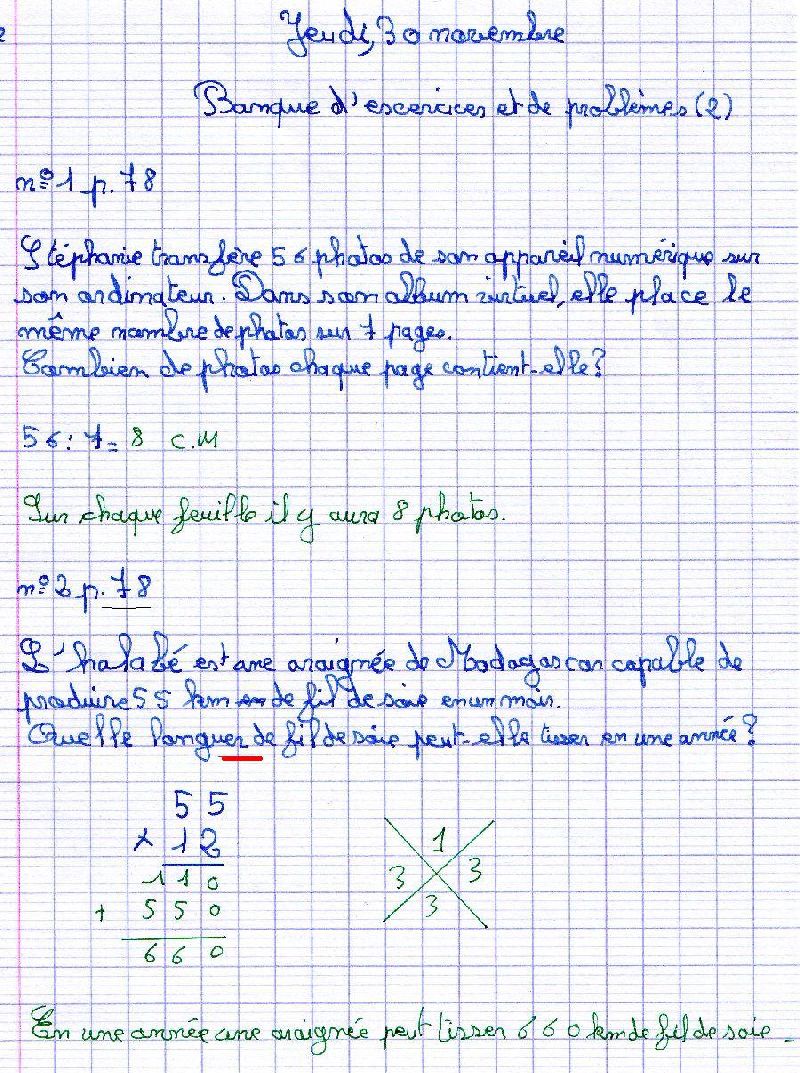 Jeudi, 30 novembre
Banque d'exercices et de problèmes (2)
nº 1 p. 78
Stéphanie transfère 56 photos de son appareil numérique sur
son ordinateur. Dans son album virtuel, elle place le
même nombre de photos sur 7 pages.
Combien de photos chaque page contient-elle?
56 : 7 = 8 C.M
Sur chaque feuille il y aura 8 photos.
nº 2 p. 78
L'halabé est une araignée de Madagascar capable de
produire 55 km de fil de soie en un mois.
Quelle longuer de fil de soie peut-elle tisser en une année?
55
× 12
110
+ 550
660
1
3 3
3
En une année une araignée peut tisser 660 km de fil de soie.